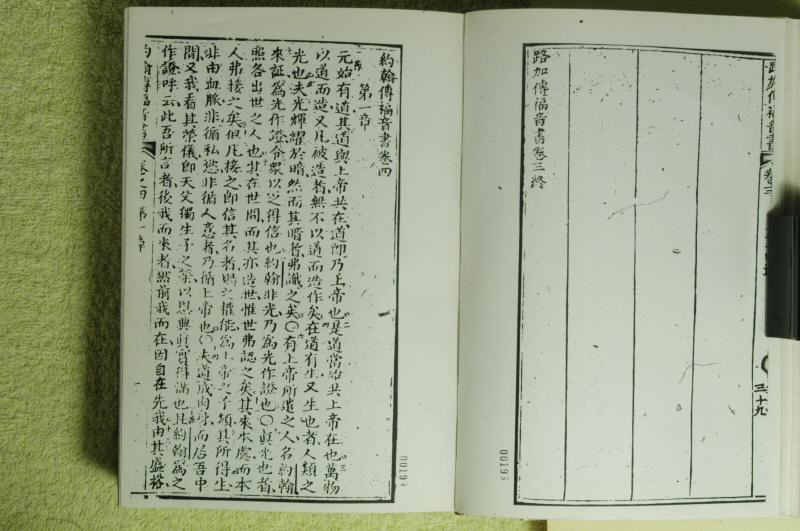 路加傳福音書
卷三
三十九
路加傳福音書卷三終
00193
約翰傳福音書卷四
第一章
元始有道其道與上帝共在道即乃上帝也是道當始共上帝在也萬物
以道而造又凡被造者無不以道而造作矣在道有生又生也者人類之
光也夫光輝耀於暗然而其暗者弗識之矣○有上帝所遣之人名約翰
來証為光作證令眾以之得信也約翰非光乃為光作證也○真光也者
照各出世之人也其在世間而其亦造世惟世弗認之矣其來本處而本
人弗接之矣但凡接之即信其名者賜之權能為上帝之子類其所得生
非由血脈非循私慾非循人意者乃循上帝也○夫道成肉身而居吾中
間又我看其榮儀即天父獨生子之榮以恩典真實得滿也且約翰為之
作證呼云此吾所言者後我而來者然前我而在因自在先我由其盛裕
約翰傳福音書
卷之四
第一章